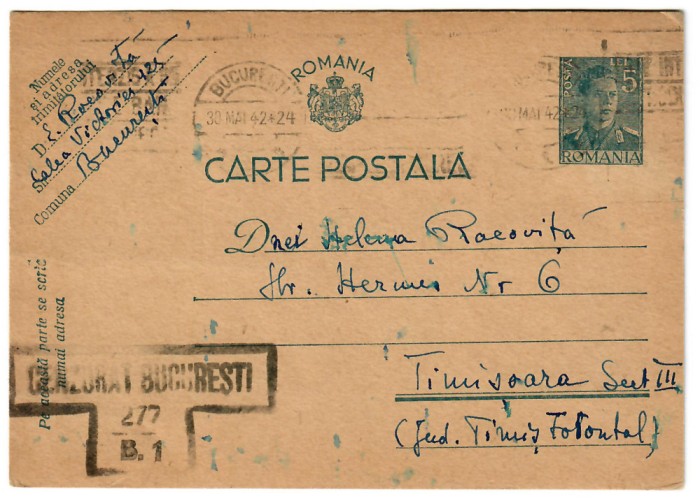 Numele
și adresa
trimițătorului
D. E. Racoviță
Calea Victoriei 125
Comuna București
ROMANIA
BUCUREȘTI
30 MAI 42 * 24
30 MAI 42 * 24
POSTA LEI 5
ROMANIA
CARTE POSTALĂ
Dnei Helena Racoviță
Str. Hermes Nr 6
Timisoara Sect III
(Jud. Timiș Torontal)
Pe această parte se scrie
numai adresa
CENZURAT BUCUREȘTI
277
B. 1